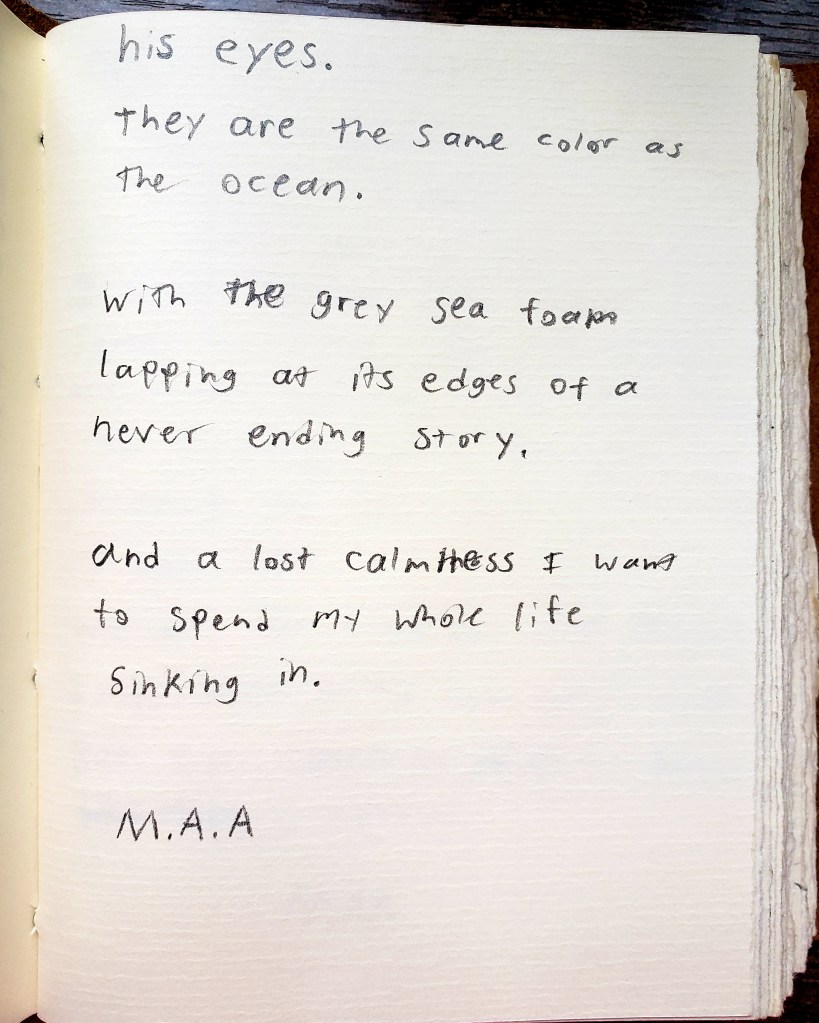 his eyes.
they are the same color as
the ocean.
with the grey sea foam
lapping at its edges of a
never ending story.
and a lost calmness I want
to spend my whole life
sinking in.
M.A.A